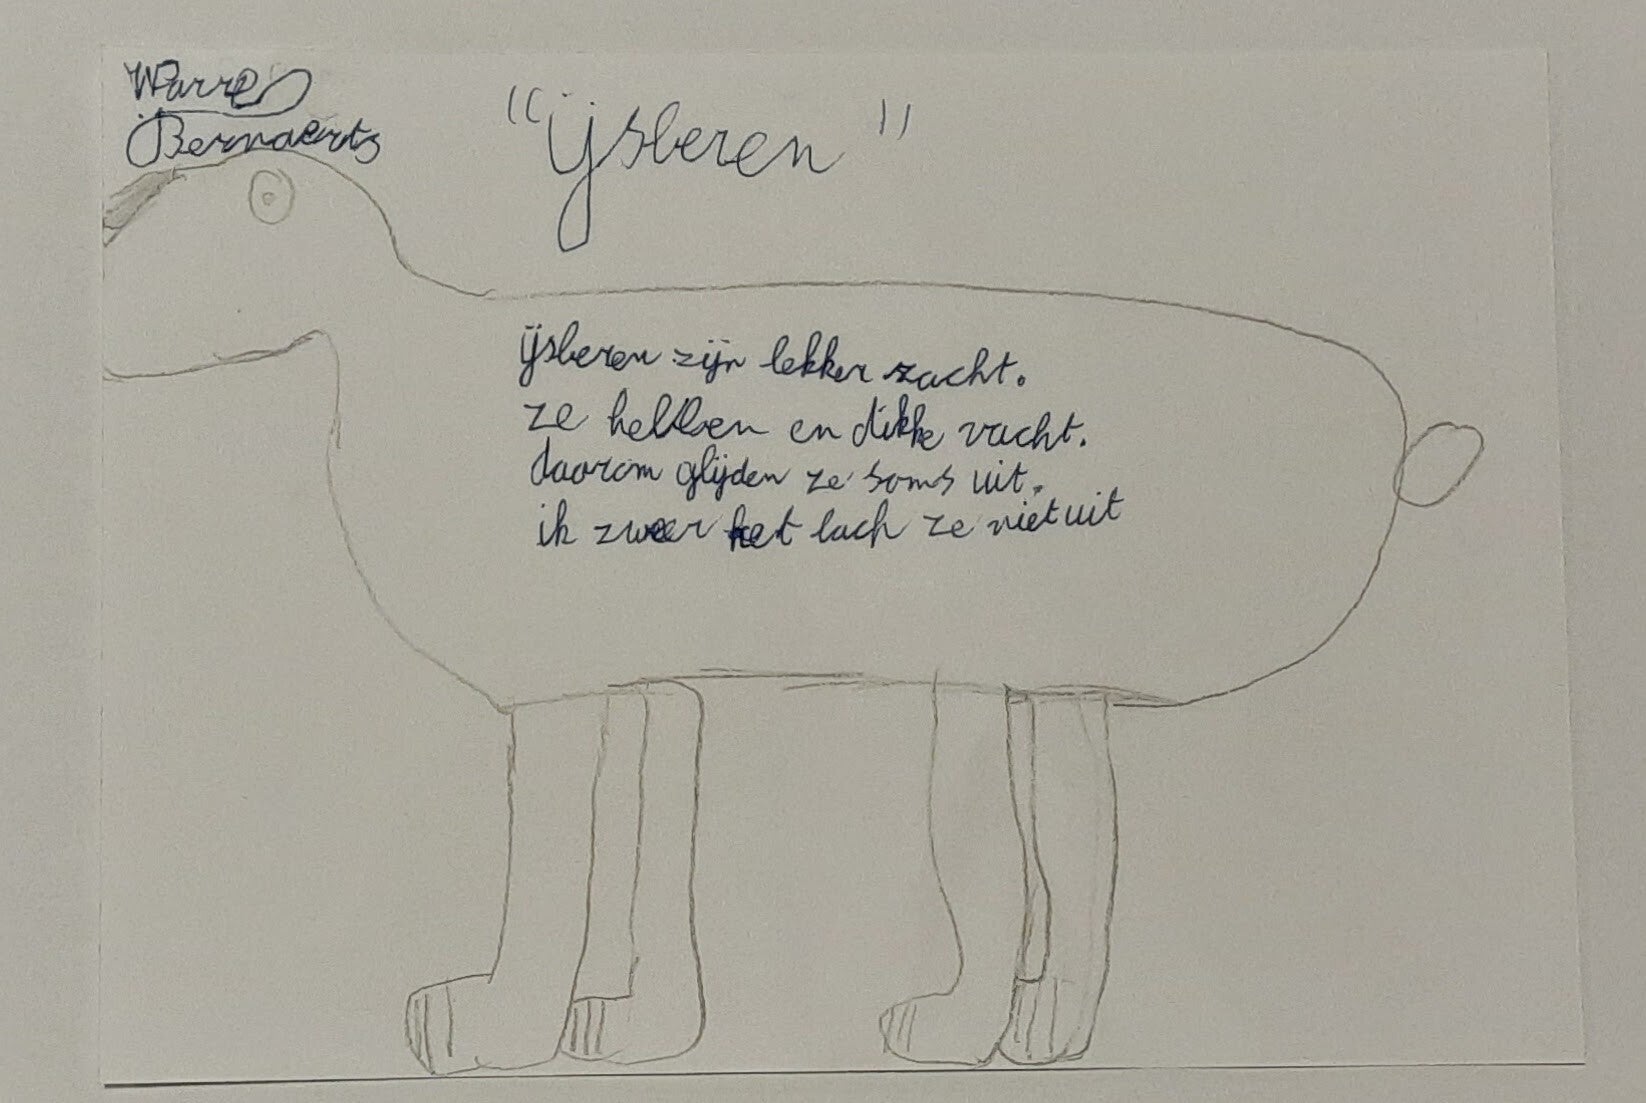 Warre
Bernaerts
"ijsberen"
ijsberen zijn lekker zacht.
ze hebben en dikke vacht.
daarom glijden ze soms uit.
ik zweer het lach ze niet uit